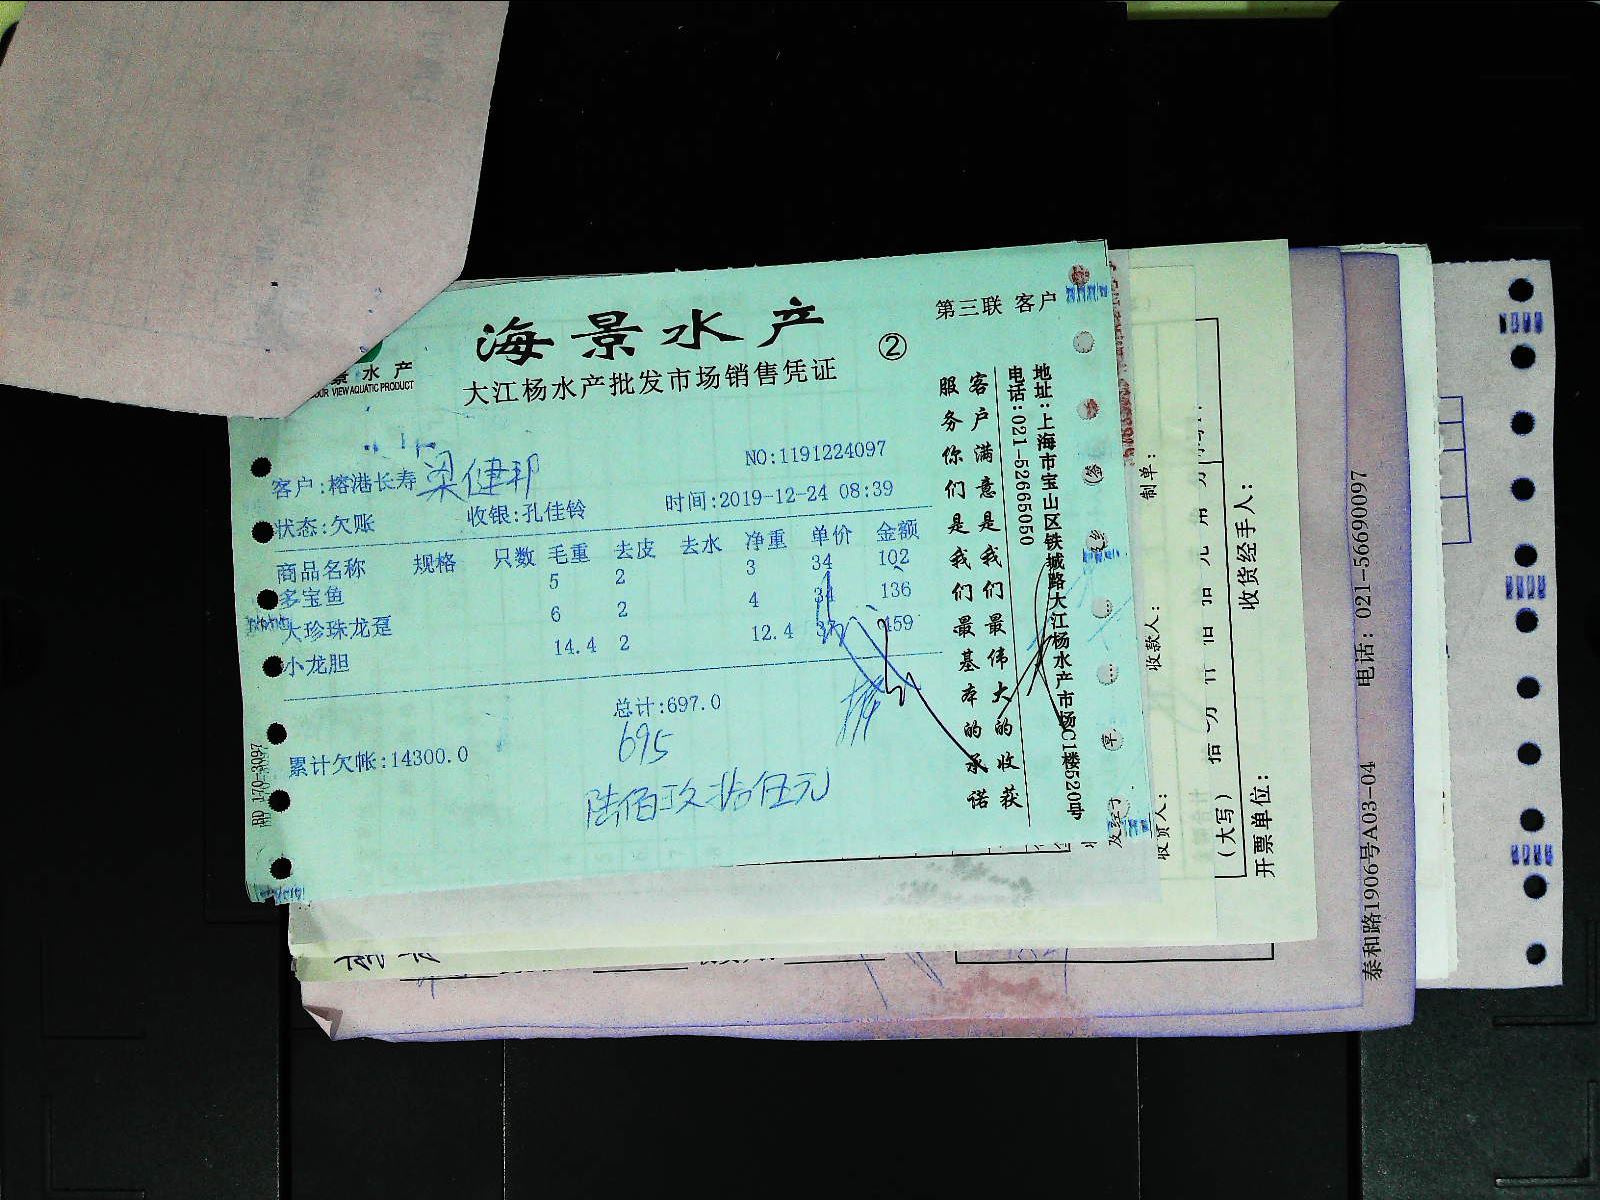 景水产
OUR VIEW AQUATIC PRODUCT
海景水产
大江杨水产批发市场销售凭证
②
第三联 客户
客户:榕港长寿 梁健邦
NO:1191224097
状态:欠账 收银:孔佳铃 时间:2019-12-24 08:39
商品名称 规格 只数 毛重 去皮 去水 净重 单价 金额
多宝鱼 5 2 3 34 102
大珍珠龙趸 6 2 4 34 136
小龙胆 14.4 2 12.4 37 459
总计:697.0
695
累计欠帐:14300.0
陆佰玖拾伍元
BD 170-3097
客户满意是我们最伟大的收获
服务你们是我们最基本的承诺
地址:上海市宝山区铁城路大江杨水产市场C1楼520号
电话:021-52665050
制单:
收款人:
收货经手人:
(大写)
开票单位:
泰和路1906号A03-04 电话: 021-56690097